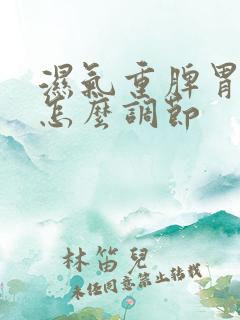 濕氣重脾胃
怎麼調節
林笛兒
未經同意禁止轉載